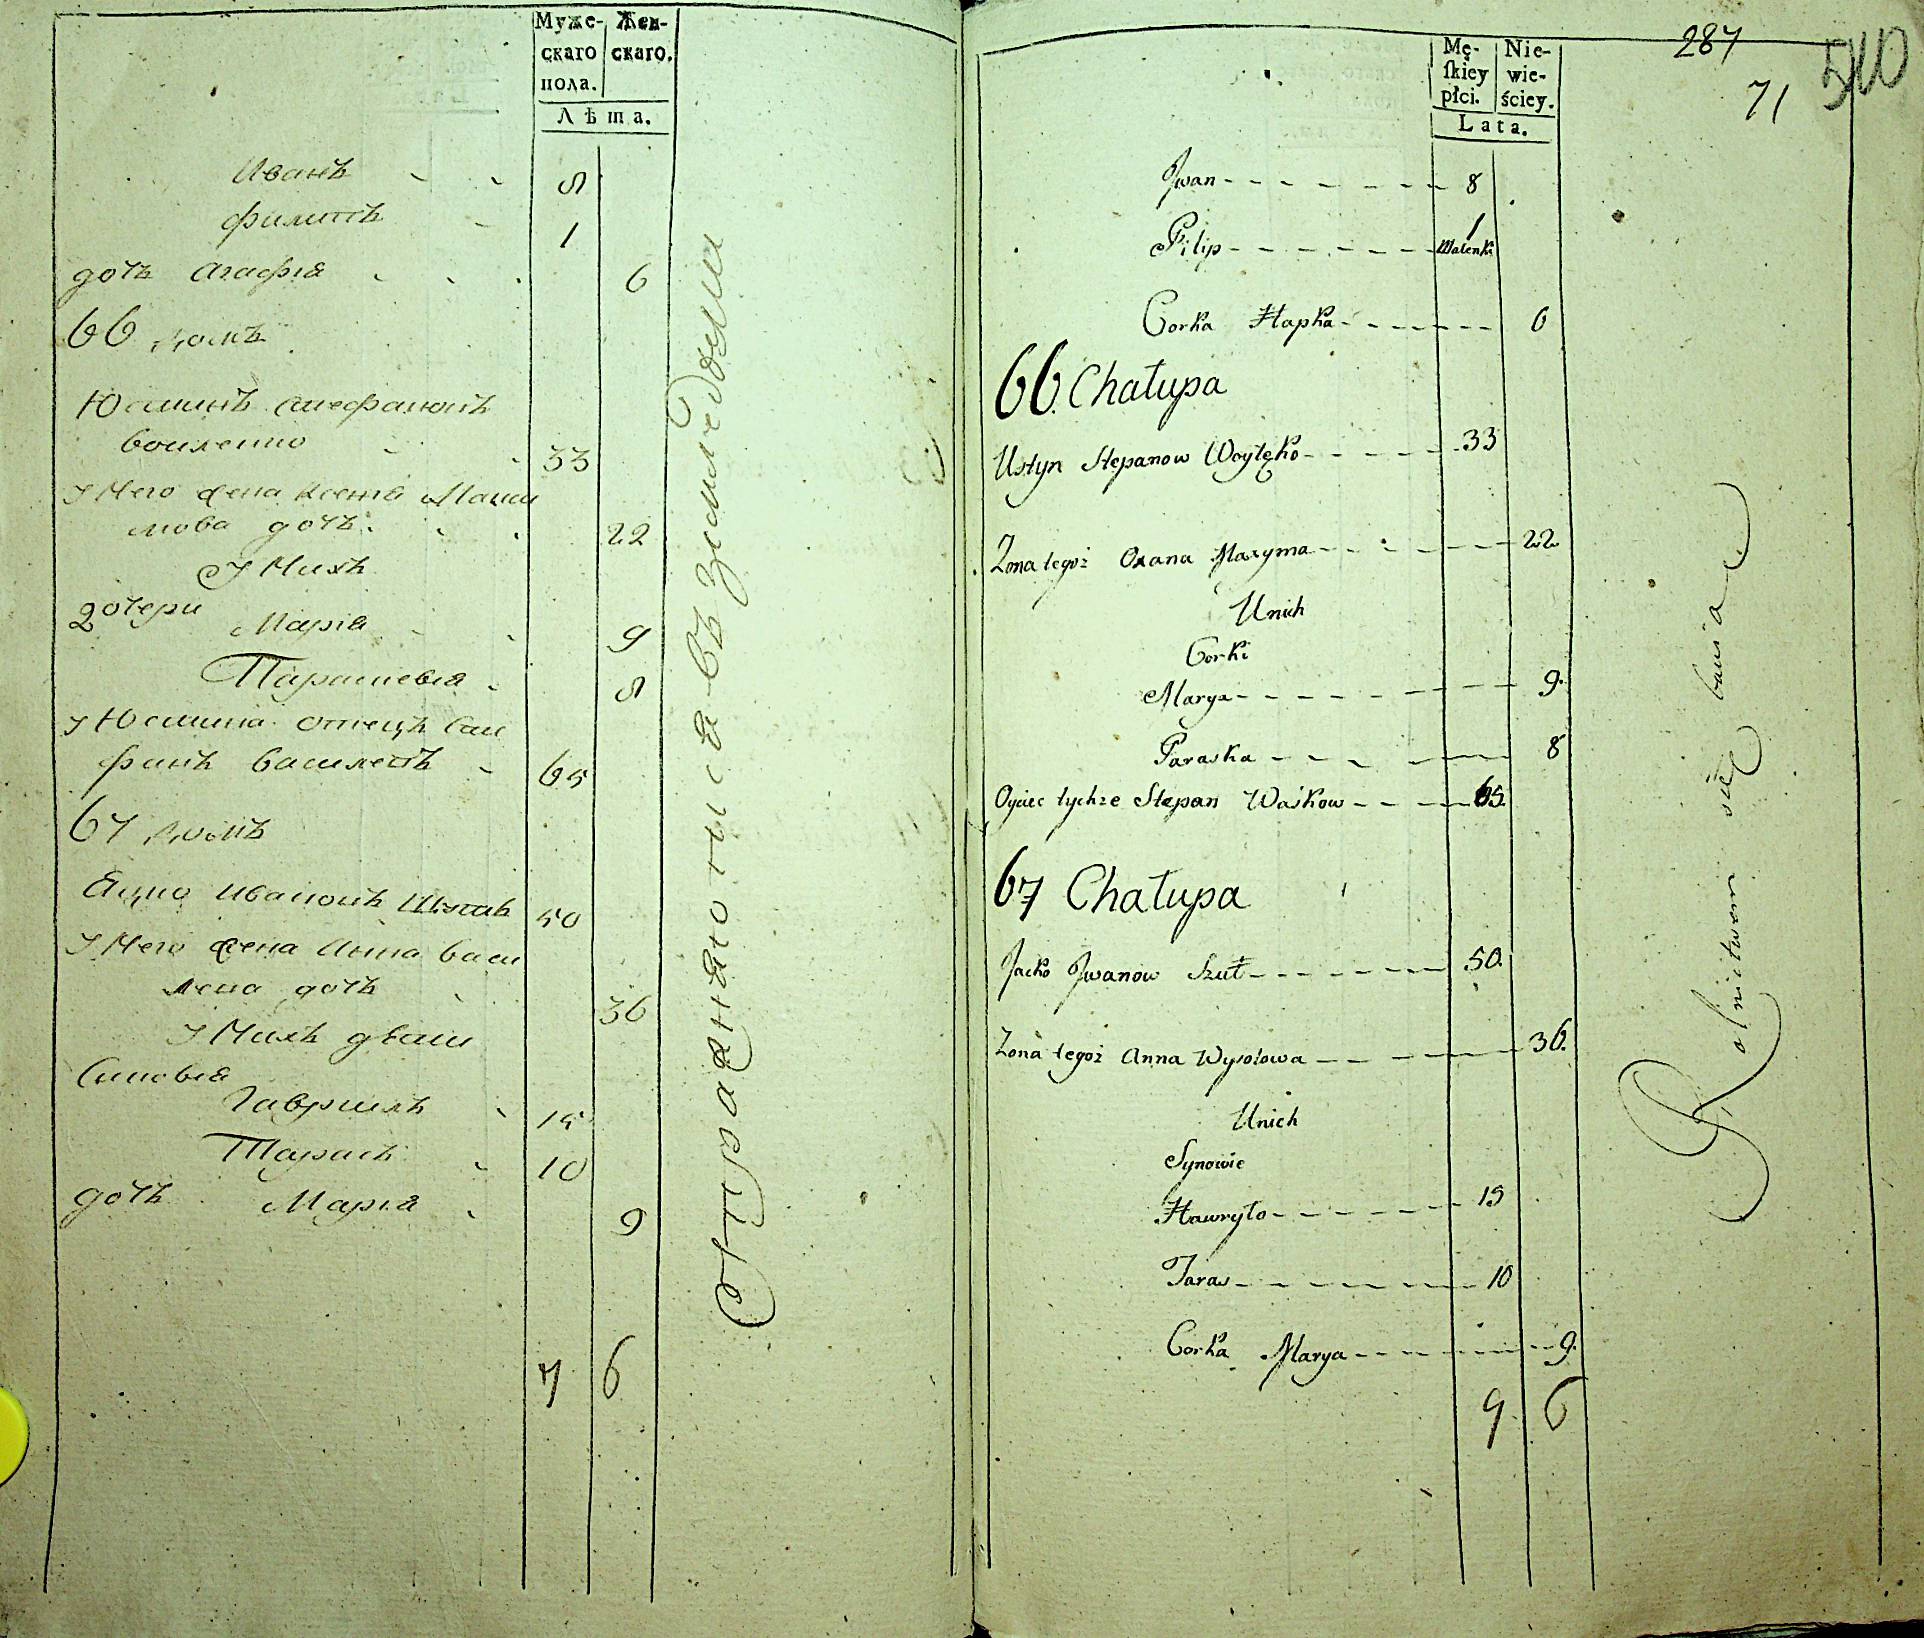 Муже-
скаго
пола.
Жен-
скаго.
Лѣта.
Иванъ 8
Филиппъ 1
дочь Агафїя 6
66 домъ
Юстинъ Стефановъ
Войленко 33
У Него жена Ксенїя Макси
мова дочь 22
У Нихъ
дочери
Марїя 9
Парасковїя 8
У Юстина отецъ Сте
фанъ Васильевъ 65
67 домъ
Яцко Ивановъ Шутъ 50
У Него жена Анна Васи
льева дочь 36
У Нихъ дѣти
Сыновья
Гаврїилъ 15
Тарасъ 10
дочь Марїя 9
7 6
Упражняются въ земледелии
287
71
540
Mę-
ſkiey
płci.
Nie-
wie-
ściey.
Lata.
Jwan 8
Filip 1
Malenki
Corka Hapka 6
66. Chałupa
Ustyn Stepanow Woytęko 33
Zona tegoż Oxana Maxyma 22
Unich
Corki
Marya 9.
Paraska 8
Oyciec tychże Stepan Waśkow 65.
67 Chałupa
Jacko Jwanow Szut 50.
Zona tegoż Anna Wysołowa 36.
Unich
Synowie
Hawryło 15
Taras 10
Corka Marya 9.
9 6
Rolnictwem się bawia